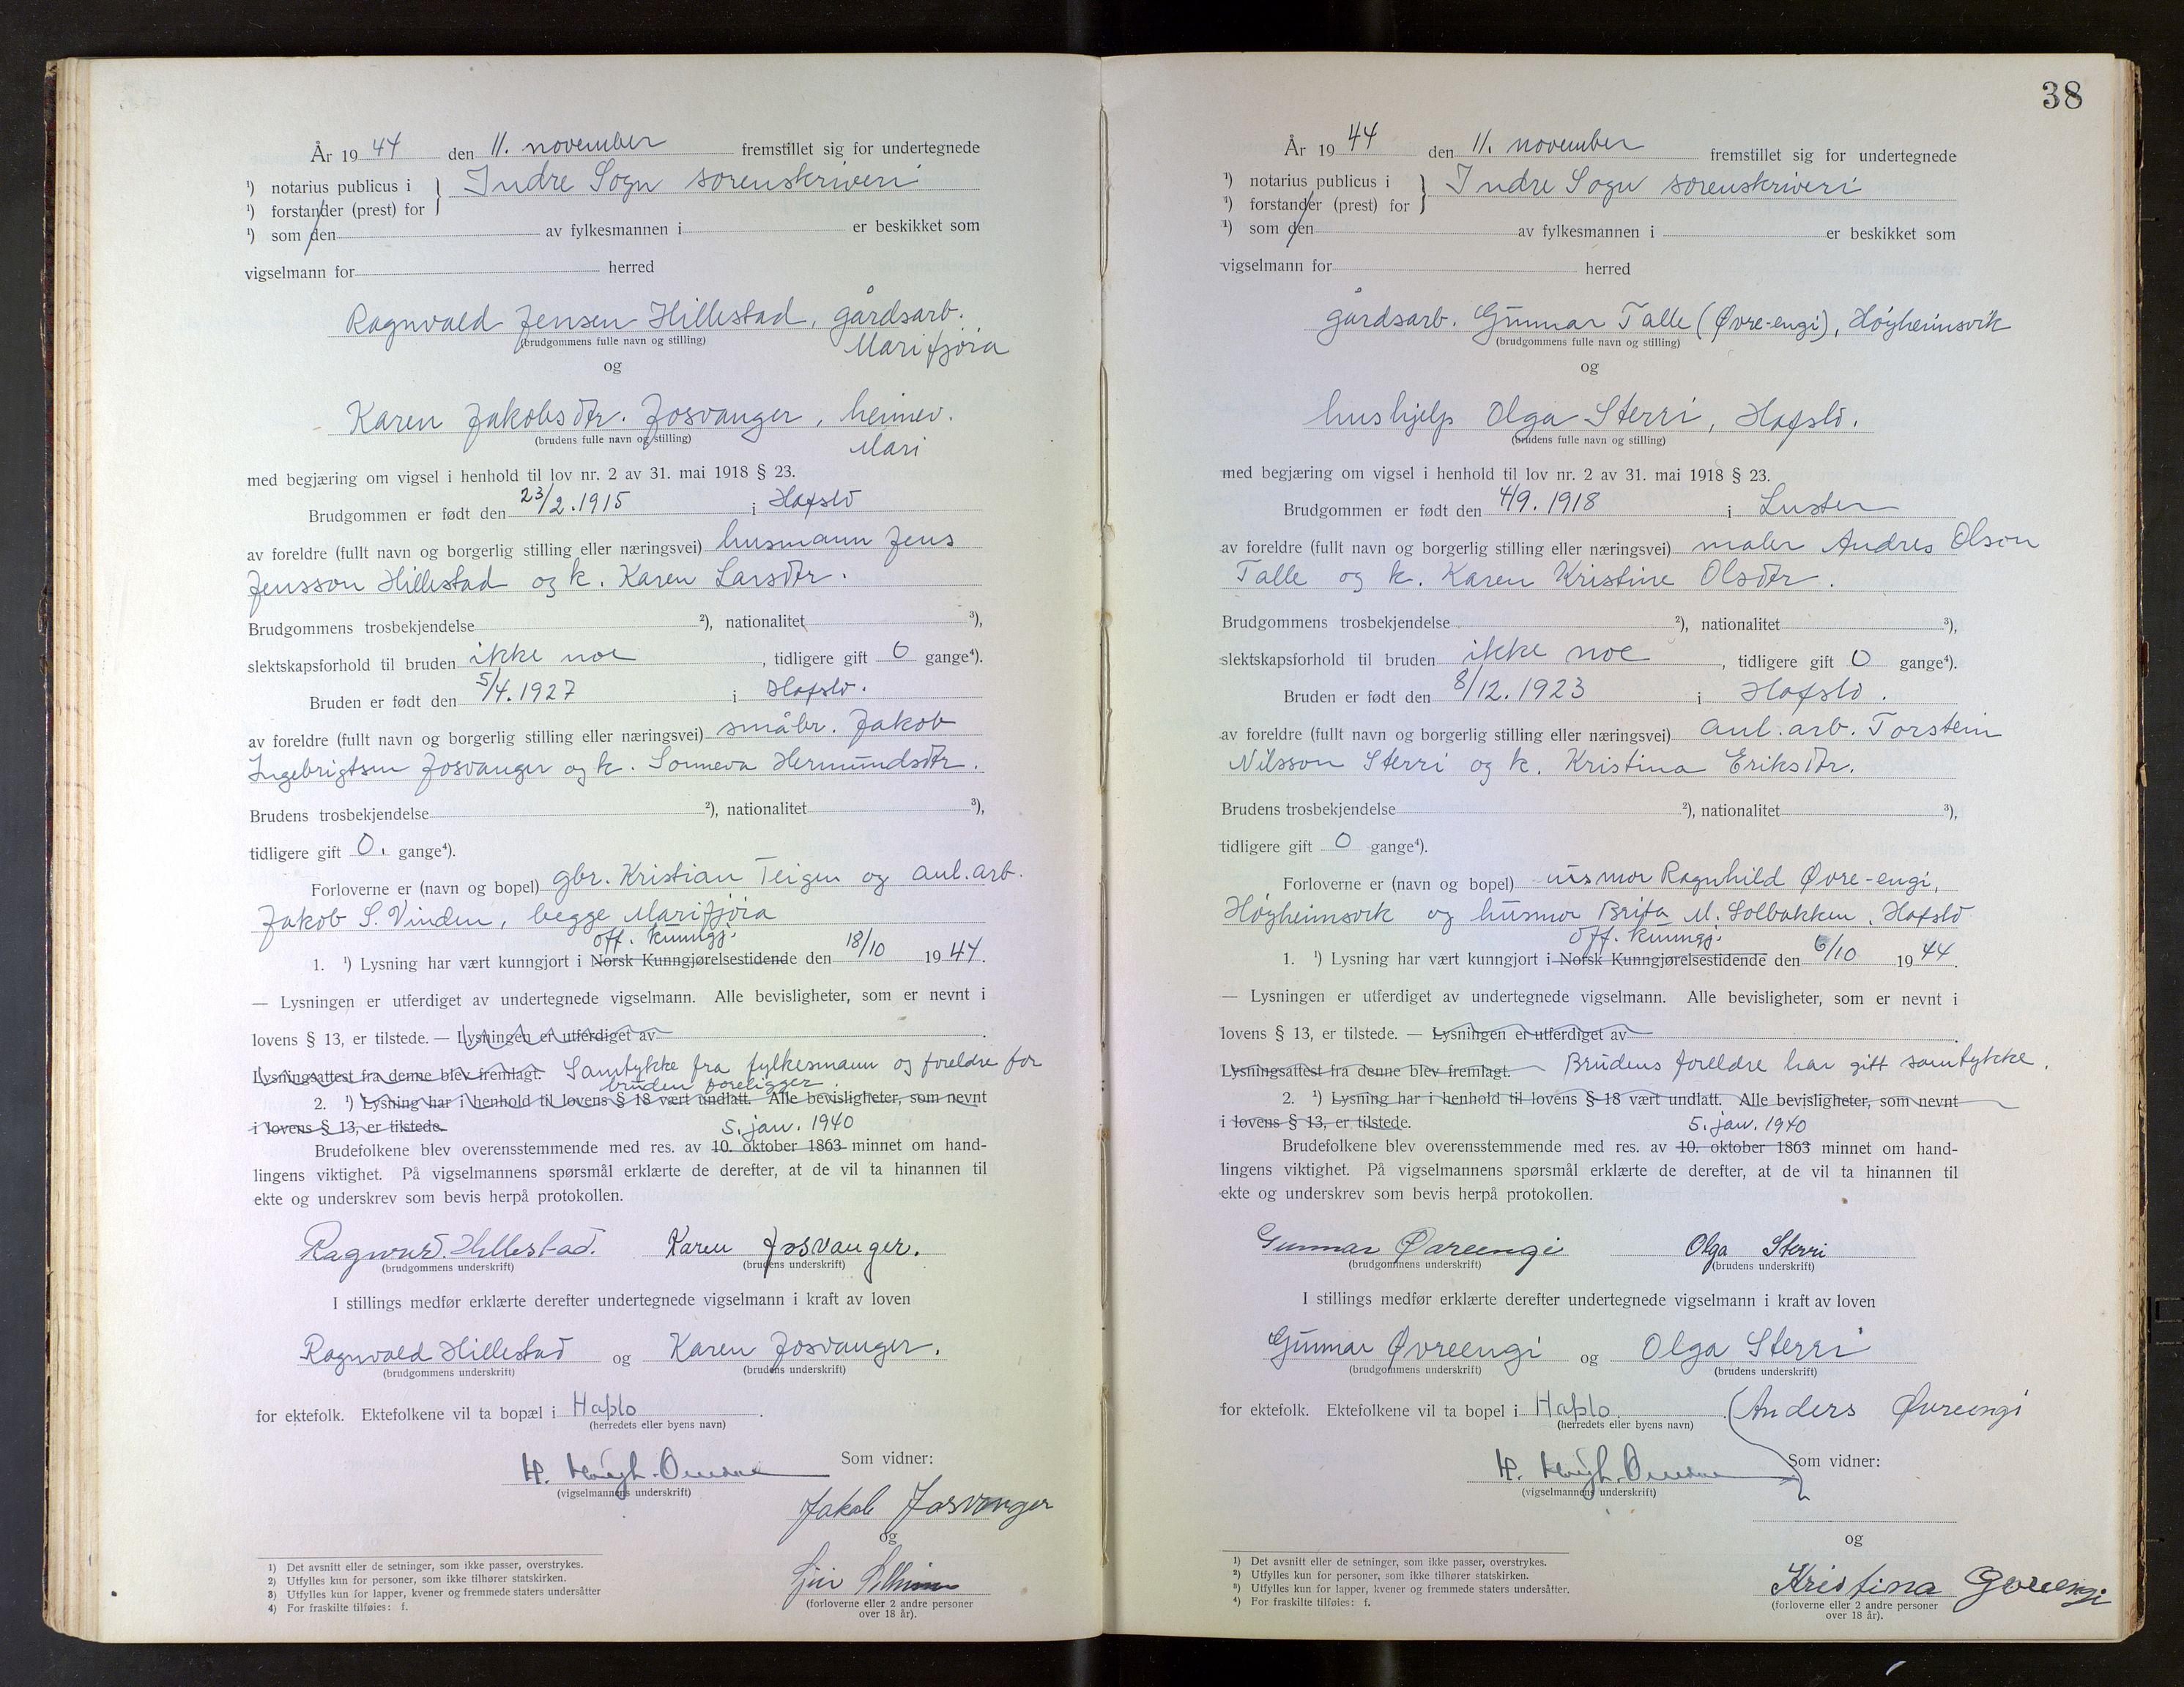 År 19 44 den 11. november fremstillet sig for undertegnede
¹) notarius publicus i } Indre Sogn sorenskriveri
¹) forstander (prest) for
¹) som den av fylkesmannen i er beskikket som
vigselmann for herred
Ragnvald Jensen Hillestad, gårdsarb.
(brudgommens fulle navn og stilling) Marifjøra
og
Karen Jakobsdtr. Josvanger, heimev.
(brudens fulle navn og stilling) Mari
med begjæring om vigsel i henhold til lov nr. 2 av 31. mai 1918 § 23.
Brudgommen er født den 23/2.1915 i Hafslo
av foreldre (fullt navn og borgerlig stilling eller næringsvei) husmann Jens
Jensson Hillestad og k. Karen Larsdtr.
Brudgommens trosbekjendelse ²), nationalitet ³),
slektskapsforhold til bruden ikke noe, tidligere gift 0 gange⁴).
Bruden er født den 5/4.1927 i Hafslo.
av foreldre (fullt navn og borgerlig stilling eller næringsvei) småbr. Jakob
Ingebrigtsen Josvanger og k. Sonneva Hermundsdtr.
Brudens trosbekjendelse ²), nationalitet ³),
tidligere gift 0. gange⁴).
Forloverne er (navn og bopel) gbr. Kristian Teigen og anl.arb.
Jakob S. Vinden, begge Marifjøra
off. kunngj.
1. ¹) Lysning har vært kunngjort i Norsk Kunngjørelsestidende den 18/10 19 44.
— Lysningen er utferdiget av undertegnede vigselmann. Alle bevisligheter, som er nevnt i
lovens § 13, er tilstede. — Lysningen er utferdiget av
Lysningsattest fra denne blev fremlagt. Samtykke fra fylkesmann og foreldre for
bruden foreligger.
2. ¹) Lysning har i henhold til lovens § 18 vært undlatt. Alle bevisligheter, som nevnt
i lovens § 13, er tilstede.
5. jan. 1940
Brudefolkene blev overensstemmende med res. av 10. oktober 1863 minnet om hand-
lingens viktighet. På vigselmannens spørsmål erklærte de derefter, at de vil ta hinannen til
ekte og underskrev som bevis herpå protokollen.
Ragnvard. Hillestad. Karen Josvanger.
(brudgommens underskrift) (brudens underskrift)
I stillings medfør erklærte derefter undertegnede vigselmann i kraft av loven
Ragnvald Hillestad og Karen Josvanger.
(brudgommens underskrift) (brudens underskrift)
for ektefolk. Ektefolkene vil ta bopæl i Hafslo.
(herredets eller byens navn)
Som vidner:
H.
(vigselmannens underskrift)
Jakob Josvanger
og
(forloverne eller 2 andre personer
over 18 år).
1) Det avsnitt eller de setninger, som ikke passer, overstrykes.
2) Utfylles kun for personer, som ikke tilhører statskirken.
3) Utfylles kun for lapper, kvener og fremmede staters undersåtter
4) For fraskilte tilføies: f.
38
År 19 44 den 11. november fremstillet sig for undertegnede
¹) notarius publicus i } Indre Sogn sorenskriveri
¹) forstander (prest) for
¹) som den av fylkesmannen i er beskikket som
vigselmann for herred
gårdsarb. Gunnar Talle (Øvre-engi), Høyheimsvik
(brudgommens fulle navn og stilling)
og
hushjelp Olga Sterri, Hafslo.
(brudens fulle navn og stilling)
med begjæring om vigsel i henhold til lov nr. 2 av 31. mai 1918 § 23.
Brudgommen er født den 4/9. 1918 i Luster
av foreldre (fullt navn og borgerlig stilling eller næringsvei) maler Andres Olson
Talle og k. Karen Kristine Olsdtr.
Brudgommens trosbekjendelse ²), nationalitet ³),
slektskapsforhold til bruden ikke noe, tidligere gift 0 gange⁴).
Bruden er født den 8/12. 1923 i Hafslo.
av foreldre (fullt navn og borgerlig stilling eller næringsvei) anl.arb. Torstein
Nilsson Sterri og k. Kristina Eriksdtr.
Brudens trosbekjendelse ²), nationalitet ³),
tidligere gift 0 gange⁴).
Forloverne er (navn og bopel) usmor Ragnhild Øvre-engi,
Høyheimsvik og husmor Brita M. Solbakken, Hafslo
off. kunngj.
1. ¹) Lysning har vært kunngjort i Norsk Kunngjørelsestidende den 6/10 19 44.
— Lysningen er utferdiget av undertegnede vigselmann. Alle bevisligheter, som er nevnt i
lovens § 13, er tilstede. — Lysningen er utferdiget av
Lysningsattest fra denne blev fremlagt. Brudens foreldre har gitt samtykke.
2. ¹) Lysning har i henhold til lovens § 18 vært undlatt. Alle bevisligheter, som nevnt
i lovens § 13, er tilstede.
5. jan. 1940
Brudefolkene blev overensstemmende med res. av 10. oktober 1863 minnet om hand-
lingens viktighet. På vigselmannens spørsmål erklærte de derefter, at de vil ta hinannen til
ekte og underskrev som bevis herpå protokollen.
Gunnar Øvreengi Olga Sterri
(brudgommens underskrift) (brudens underskrift)
I stillings medfør erklærte derefter undertegnede vigselmann i kraft av loven
Gunnar Øvreengi og Olga Sterri
(brudgommens underskrift) (brudens underskrift)
for ektefolk. Ektefolkene vil ta bopel i Hafslo. (Anders Øvreengi
(herredets eller byens navn)
Som vidner:
H.
(vigselmannens underskrift)
og
Kristina Øvreengi
(forloverne eller 2 andre personer
over 18 år).
1) Det avsnitt eller de setninger, som ikke passer, overstrykes.
2) Utfylles kun for personer, som ikke tilhører statskirken.
3) Utfylles kun for lapper, kvener og fremmede staters undersåtter.
4) For fraskilte tilføies: f.